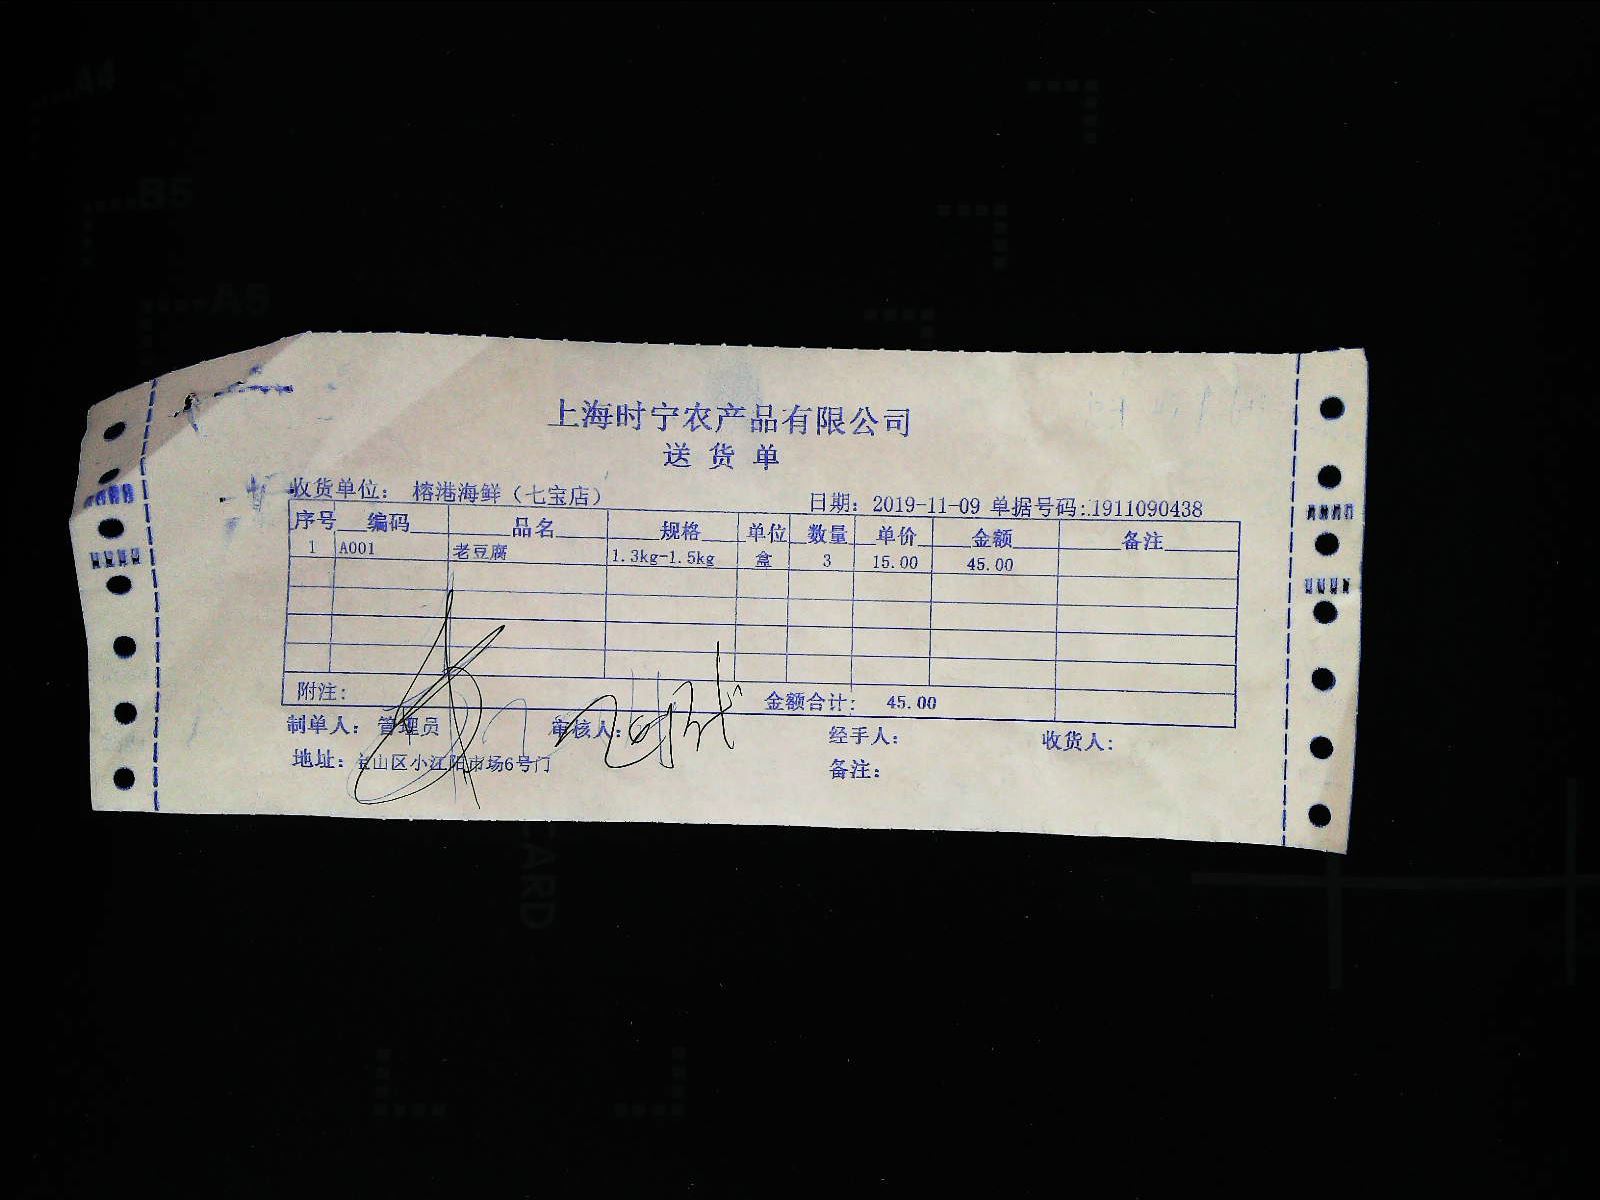 上海时宁农产品有限公司
送货单
收货单位: 榕港海鲜（七宝店） 日期: 2019-11-09 单据号码:1911090438
序号 编码 品名 规格 单位 数量 单价 金额 备注
1 A001 老豆腐 1.3kg-1.5kg 盒 3 15.00 45.00
附注: 金额合计: 45.00
制单人: 管理员 审核人: 经手人: 收货人:
地址: 山区小江阳市场6号门 备注:
A4
B5
A5
CARD